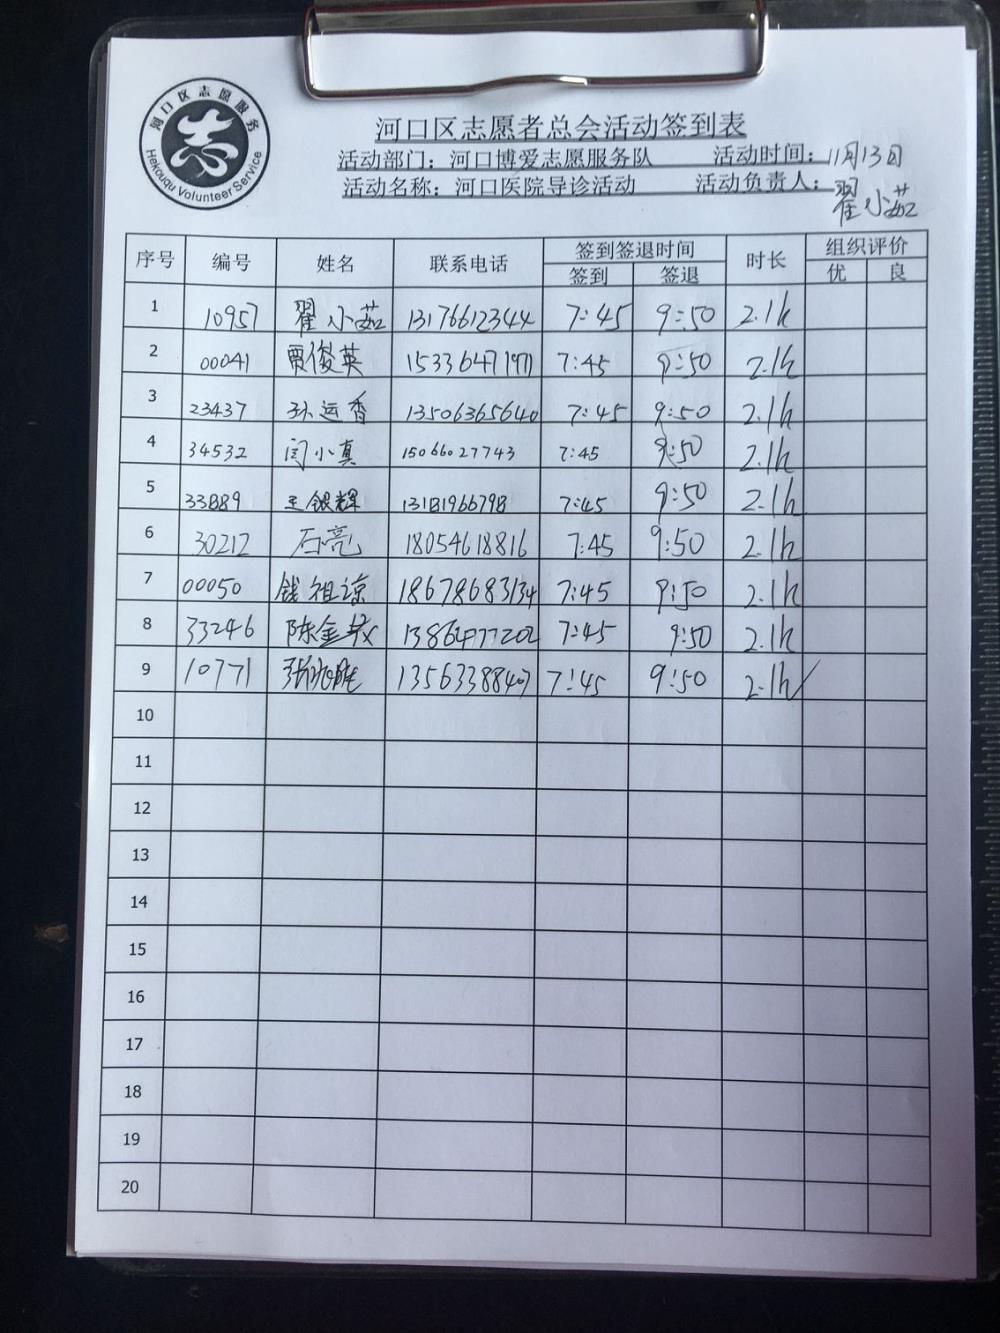 河口区志愿服务
Hekouqu Volunteer Service
河口区志愿者总会活动签到表
活动部门：河口博爱志愿服务队 活动时间：11月13日
活动名称：河口医院导诊活动 活动负责人：翟小茹
序号 编号 姓名 联系电话 签到签退时间 时长 组织评价
签到 签退 优 良
1 10957 翟小茹 13176612344 7:45 9:50 2.1h
2 00041 贾俊英 15336471971 7:45 9:50 2.1h
3 23437 孙运香 13506365640 7:45 9:50 2.1h
4 34532 闫小真 15066027743 7:45 9:50 2.1h
5 33889 王银辉 13181966798 7:45 9:50 2.1h
6 30212 石亮 18054618816 7:45 9:50 2.1h
7 00050 钱祖谅 18678683134 7:45 9:50 2.1h
8 33246 陈金 7:45 9:50 2.1h
9 10771 7:45 9:50 2.1h
10
11
12
13
14
15
16
17
18
19
20